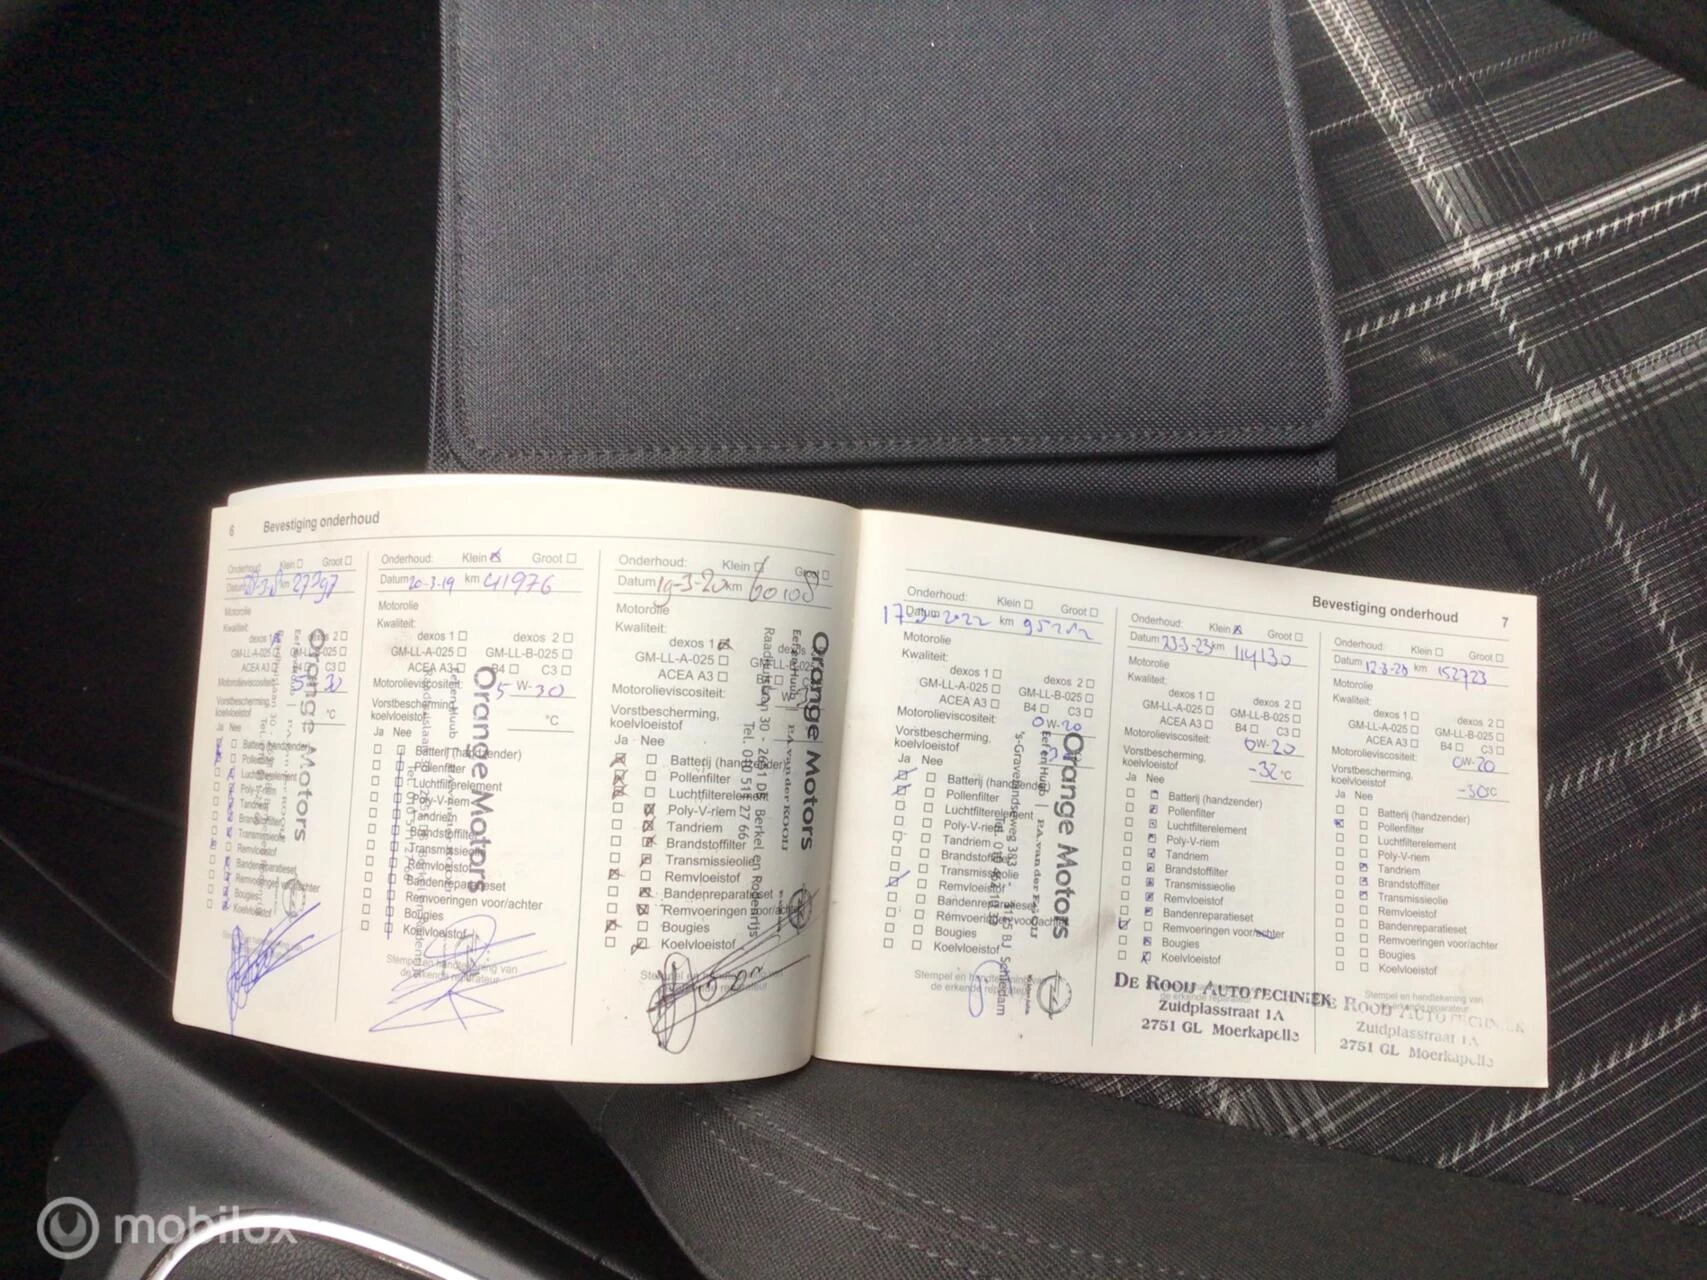 6 Bevestiging onderhoud
Onderhoud: Klein Groot
km 27797
Motorolie
Kwaliteit:
dexos 2
GM-LL-A-025
ACEA A3 C3
Motorolieviscositeit: 5 30
Vorstbescherming,
koelvloeistof °C
Ja Nee
Batterij (handzender)
Pollenfilter
Luchtfilterelement
Poly-V-riem
Tandriem
Brandstoffilter
Transmissieolie
Remvloeistof
Bandenreparatieset
Remvoeringen voor/achter
Bougies
Koelvloeistof
Orange Motors
Onderhoud: Klein Groot
Datum 20-3-19 km 41976
Motorolie
Kwaliteit:
dexos 1 dexos 2
GM-LL-A-025 GM-LL-B-025
ACEA A3 B4 C3
Motorolieviscositeit: 5 W-30
Vorstbescherming,
koelvloeistof °C
Ja Nee
Batterij (handzender)
Pollenfilter
Luchtfilterelement
Poly-V-riem
Tandriem
Brandstoffilter
Transmissieolie
Remvloeistof
Bandenreparatieset
Remvoeringen voor/achter
Bougies
Koelvloeistof
Stempel en handtekening van
de erkende reparateur
Orange Motors
Onderhoud: Klein Groot
Datum 19-3-20 km 60108
Motorolie
Kwaliteit:
dexos 1
GM-LL-A-025
ACEA A3
Motorolieviscositeit:
Vorstbescherming,
koelvloeistof
Ja Nee
Batterij (handzender)
Pollenfilter
Luchtfilterelement
Poly-V-riem
Tandriem
Brandstoffilter
Transmissieolie
Remvloeistof
Bandenreparatieset
Remvoeringen voor/achter
Bougies
Koelvloeistof
Orange Motors
Bevestiging onderhoud 7
Onderhoud: Klein Groot
Datum 2022 km
Motorolie
Kwaliteit:
dexos 1 dexos 2
GM-LL-A-025 GM-LL-B-025
ACEA A3 B4 C3
Motorolieviscositeit: 0 W-20
Vorstbescherming,
koelvloeistof
Ja Nee
Batterij (handzender)
Pollenfilter
Luchtfilterelement
Poly-V-riem
Tandriem
Brandstoffilter
Transmissieolie
Remvloeistof
Bandenreparatieset
Remvoeringen voor/achter
Bougies
Koelvloeistof
Stempel en handtekening van
de erkende reparateur
Orange Motors
's-Gravelandseweg 383 - 3125 BJ Schiedam
Onderhoud: Klein Groot
Datum 23-3-23 km 114130
Motorolie
Kwaliteit:
dexos 1 dexos 2
GM-LL-A-025 GM-LL-B-025
ACEA A3 B4 C3
Motorolieviscositeit: 0W-20
Vorstbescherming,
koelvloeistof -32°C
Ja Nee
Batterij (handzender)
Pollenfilter
Luchtfilterelement
Poly-V-riem
Tandriem
Brandstoffilter
Transmissieolie
Remvloeistof
Bandenreparatieset
Remvoeringen voor/achter
Bougies
Koelvloeistof
DE ROOIJ AUTOTECHNIEK
Zuidplasstraat 1A
2751 GL Moerkapelle
Onderhoud: Klein Groot
Datum km 152723
Motorolie
Kwaliteit:
dexos 1 dexos 2
GM-LL-A-025 GM-LL-B-025
ACEA A3 B4 C3
Motorolieviscositeit: 0W-20
Vorstbescherming,
koelvloeistof -30°C
Ja Nee
Batterij (handzender)
Pollenfilter
Luchtfilterelement
Poly-V-riem
Tandriem
Brandstoffilter
Transmissieolie
Remvloeistof
Bandenreparatieset
Remvoeringen voor/achter
Bougies
Koelvloeistof
Stempel en handtekening van
de erkende reparateur
DE ROOIJ AUTOTECHNIEK
Zuidplasstraat 1A
2751 GL Moerkapelle
mobilox